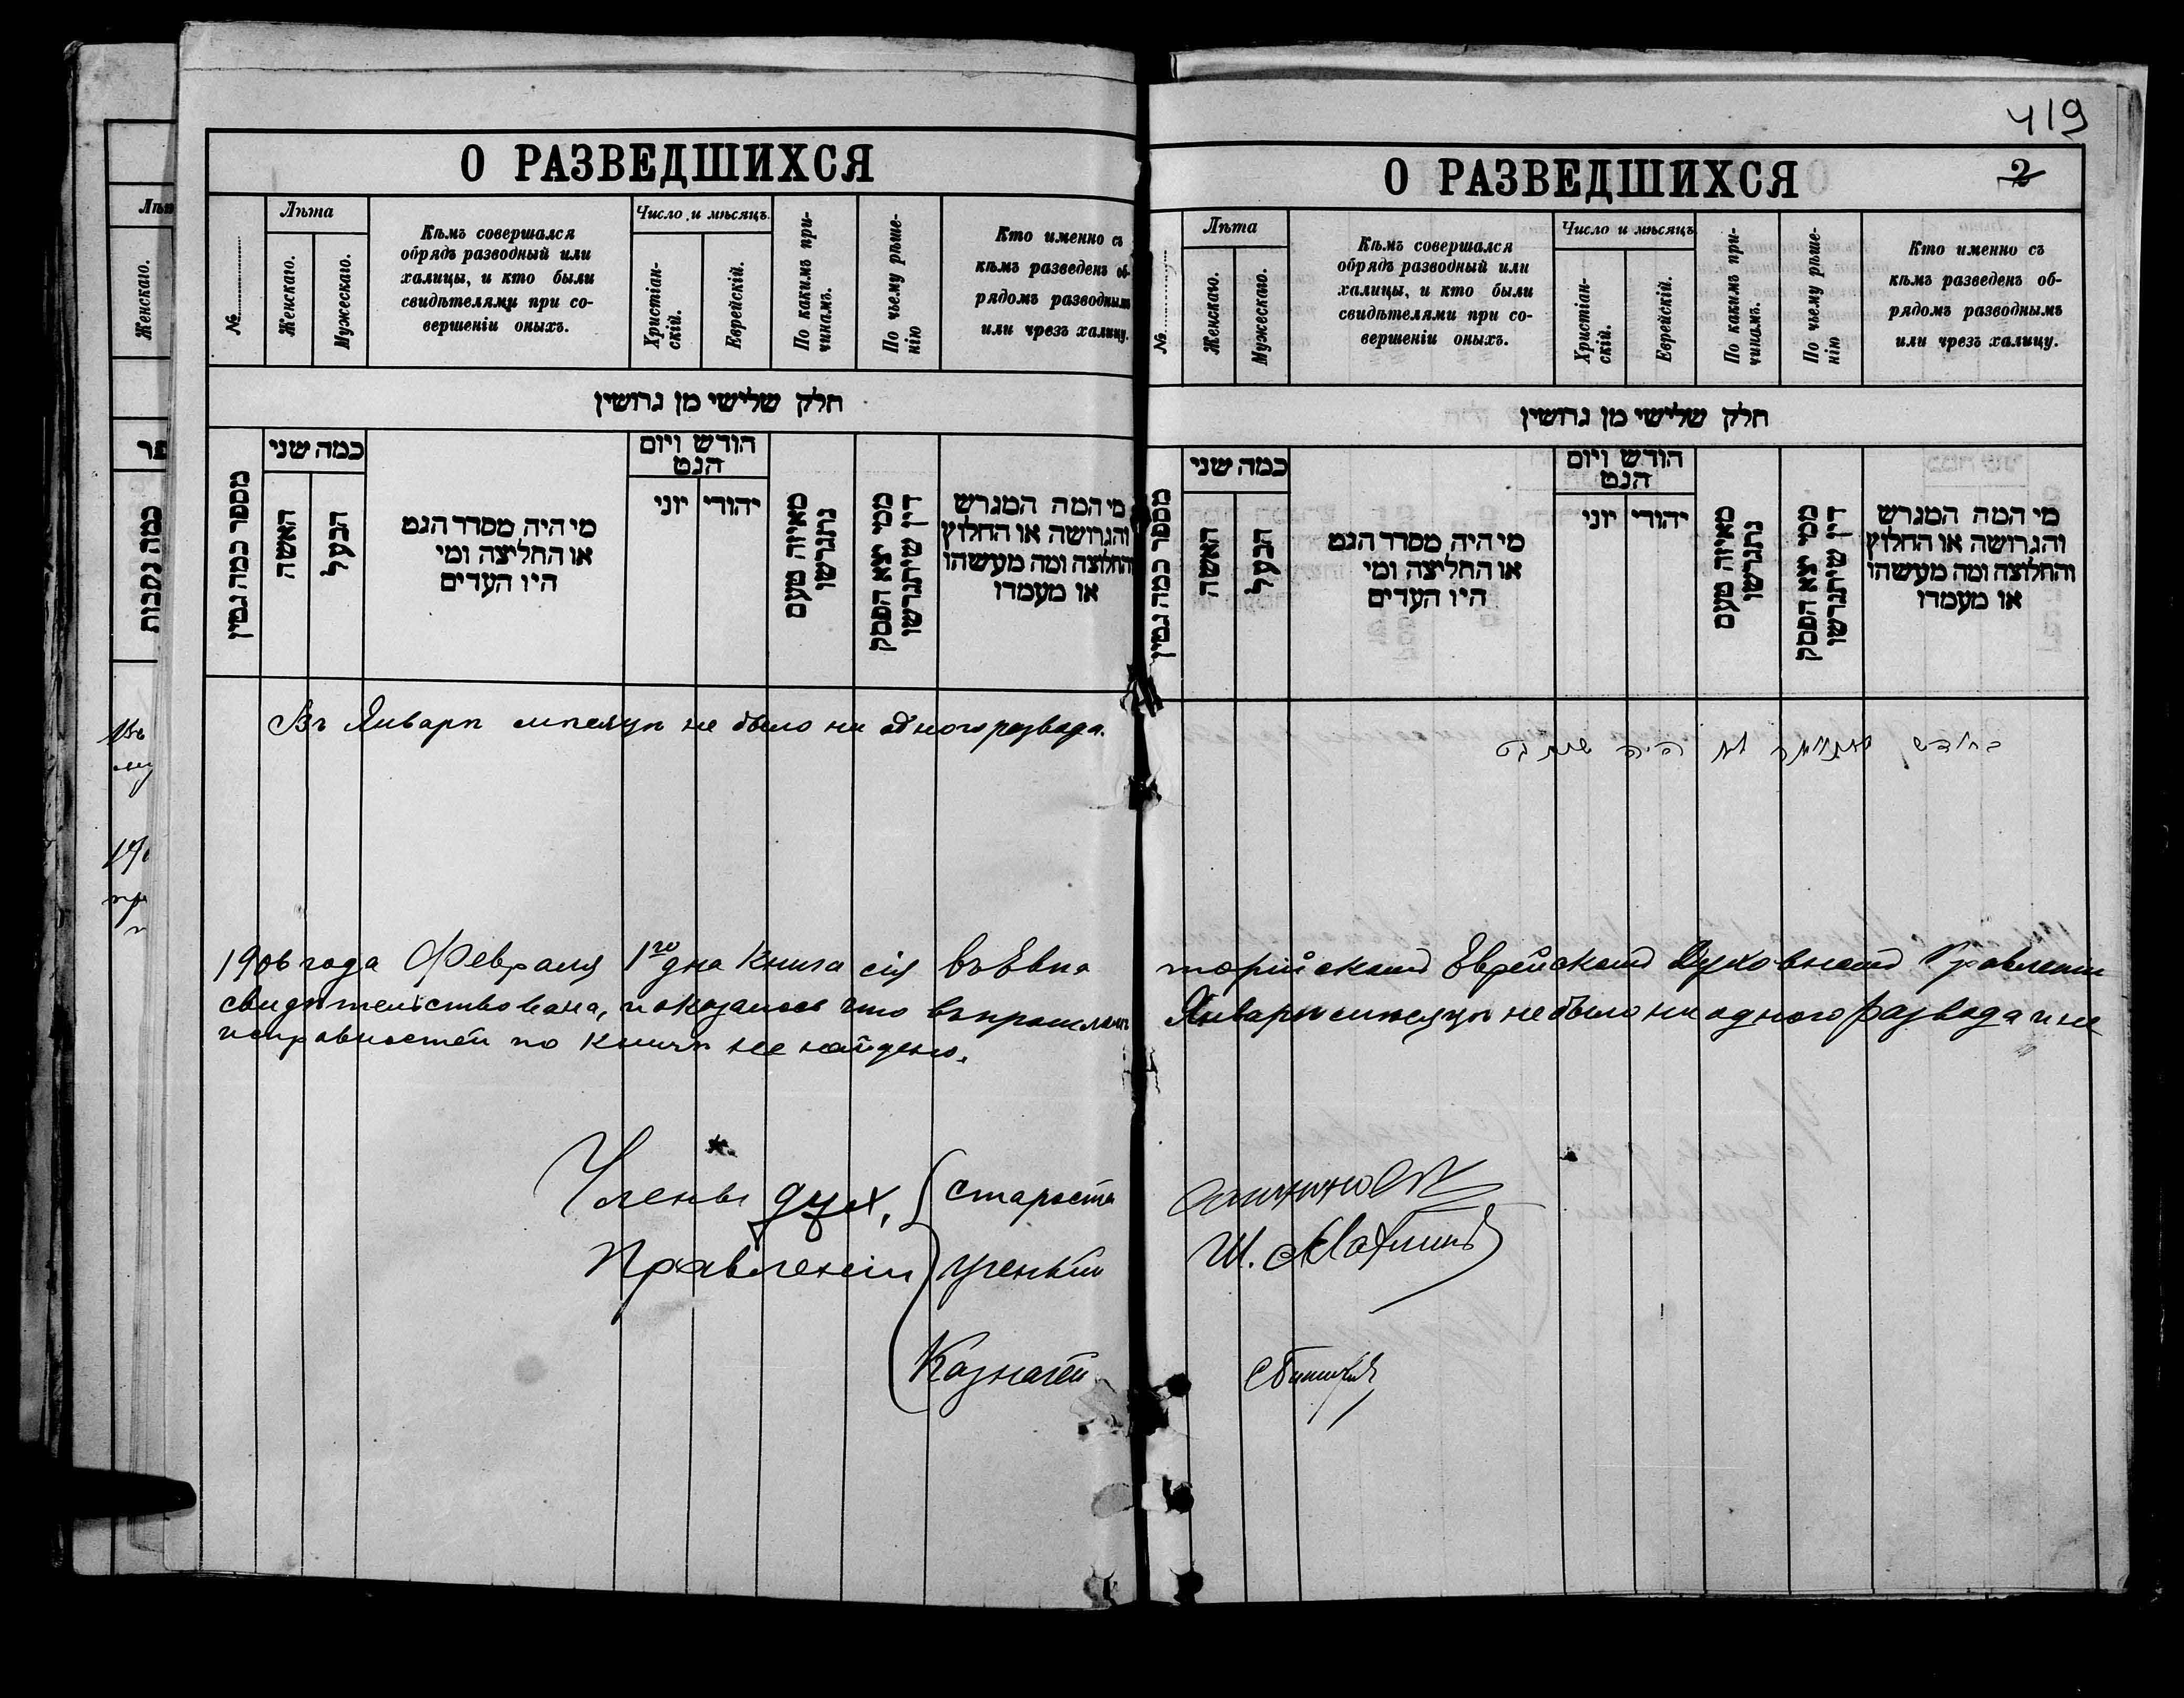 419
О РАЗВЕДШИХСЯ
№
Лѣта
Женскаго.
Мужескаго.
Кѣмъ совершался
обрядъ разводный или
халицы, и кто были
свидѣтелями при со-
вершеніи оныхъ.
Число и мѣсяцъ
Христіан-
скій.
Еврейскій.
По какимъ при-
чинамъ.
По чьему рѣше-
нію
Кто именно съ
кѣмъ разведенъ об-
рядомъ разводнымъ
или чрезъ халицу.
חלק שלישי מן גרושין
מספר כמה גטין
כמה שני
האשה
הבעל
מי היה מסדר הגט
או החליצה ומי
היו העדים
הודש ויום
הגט
יוני
יהודי
מאיזה טעם
נתגרשו
ממי יצא הפסק
דין שיתגרשו
מי המה המגרש
והגרושה או החלוץ
והחלוצה ומה מעשהו
או מעמדו
Въ Январѣ мѣсяцѣ не было ни одного развода.
О РАЗВЕДШИХСЯ
2
№
Лѣта
Женскаго.
Мужескаго.
Кѣмъ совершался
обрядъ разводный или
халицы, и кто были
свидѣтелями при со-
вершеніи оныхъ.
Число и мѣсяцъ
Христіан-
скій.
Еврейскій.
По какимъ при-
чинамъ.
По чьему рѣше-
нію
Кто именно съ
кѣмъ разведенъ об-
рядомъ разводнымъ
или чрезъ халицу.
חלק שלישי מן גרושין
מספר כמה גטין
כמה שני
האשה
הבעל
מי היה מסדר הגט
או החליצה ומי
היו העדים
הודש ויום
הגט
יוני
יהודי
מאיזה טעם
נתגרשו
ממי יצא הפסק
דין שיתגרשו
מי המה המגרש
והגרושה או החלוץ
והחלוצה ומה מעשהו
או מעמדו
בחודש לא היה שום גט
1906 года Февраля 1го дна Книга сія въ Евпа торійскомъ Еврейскомъ Духовномъ Правленіи
свидѣтельствована, и оказалось что въ прошломъ Январѣ мѣсяцѣ не было ни одного развода и не
исправностей по книгѣ не найдено.
Члены дух. Староста
Правленія Ученый Ш.
Казначей